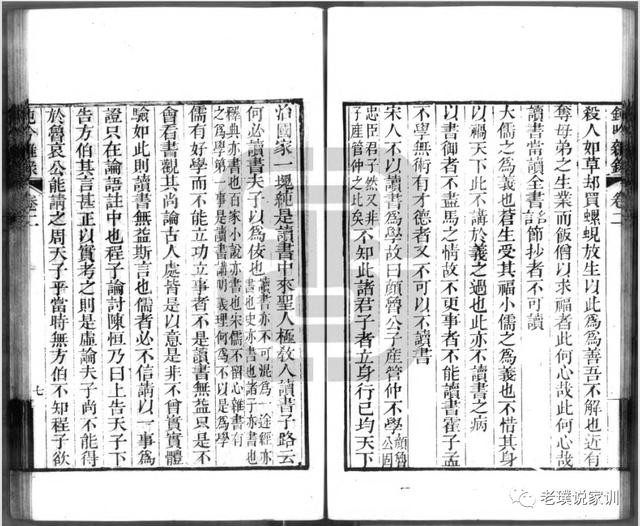 鈍吟雜錄 卷二
殺人如草却買螺蜆放生以此為為善吾不解也近有
奪母弟之生業而飯僧以求福者此何心哉此何心哉
讀書當讀全書節抄者不可讀
大儒之為義也蒼生受其福小儒之為義也不惜其身
以禍天下此不講於義之過也此亦不讀書之病
以書御者不盡馬之情故不更事者不能讀書霍子孟
不學無術有才德者又不可以不讀書
宋人不以讀書為學故曰顏魯公子產管仲不學顏魯公固
忠臣君子然又非子產管仲之比矣不知此諸君子者立身行已均天下
治國家一塊純是讀書中來聖人極教人讀書子路云
何必讀書夫子以為佞也讀書亦不可混為一途經亦書也史亦書也諸子亦書也
釋典亦書也百家小說亦書也宋儒不解心雜書有之為學第一事是讀書講明義理何為不以是為學
儒有好學而不能立功立事者不是讀書無益只是不
會看書觀其尚論古人處皆是以意是非不曾實實體
驗如此則讀書無益斯言也儒者必不信請以一事為
證只在論語註中也程子論討陳恒乃曰上告天子下
告方伯其言甚正以實考之則是虛論夫子尚不能得
於魯哀公能請之周天子乎當時無方伯不知程子欲
鈍吟雜錄 卷二 七
老璞说家训